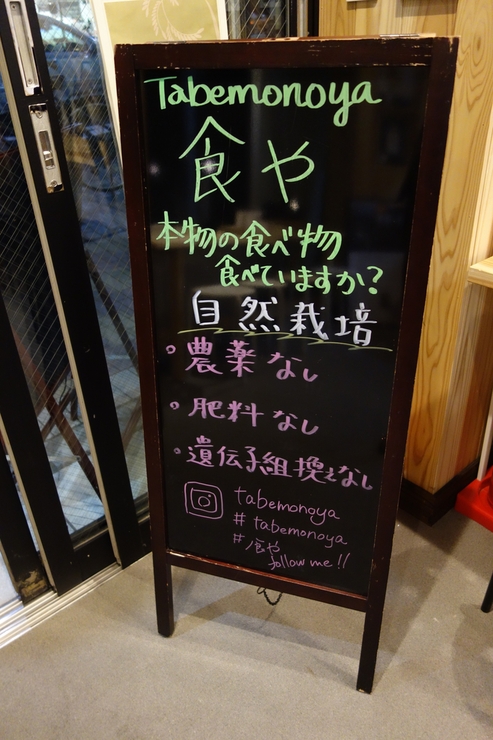 Tabemonoya
食や
本物の食べ物
食べていますか?
自然栽培
。農薬なし
。肥料なし
。遺伝子組換えなし
tabemonoya
# tabemonoya
# 食や
follow me!!